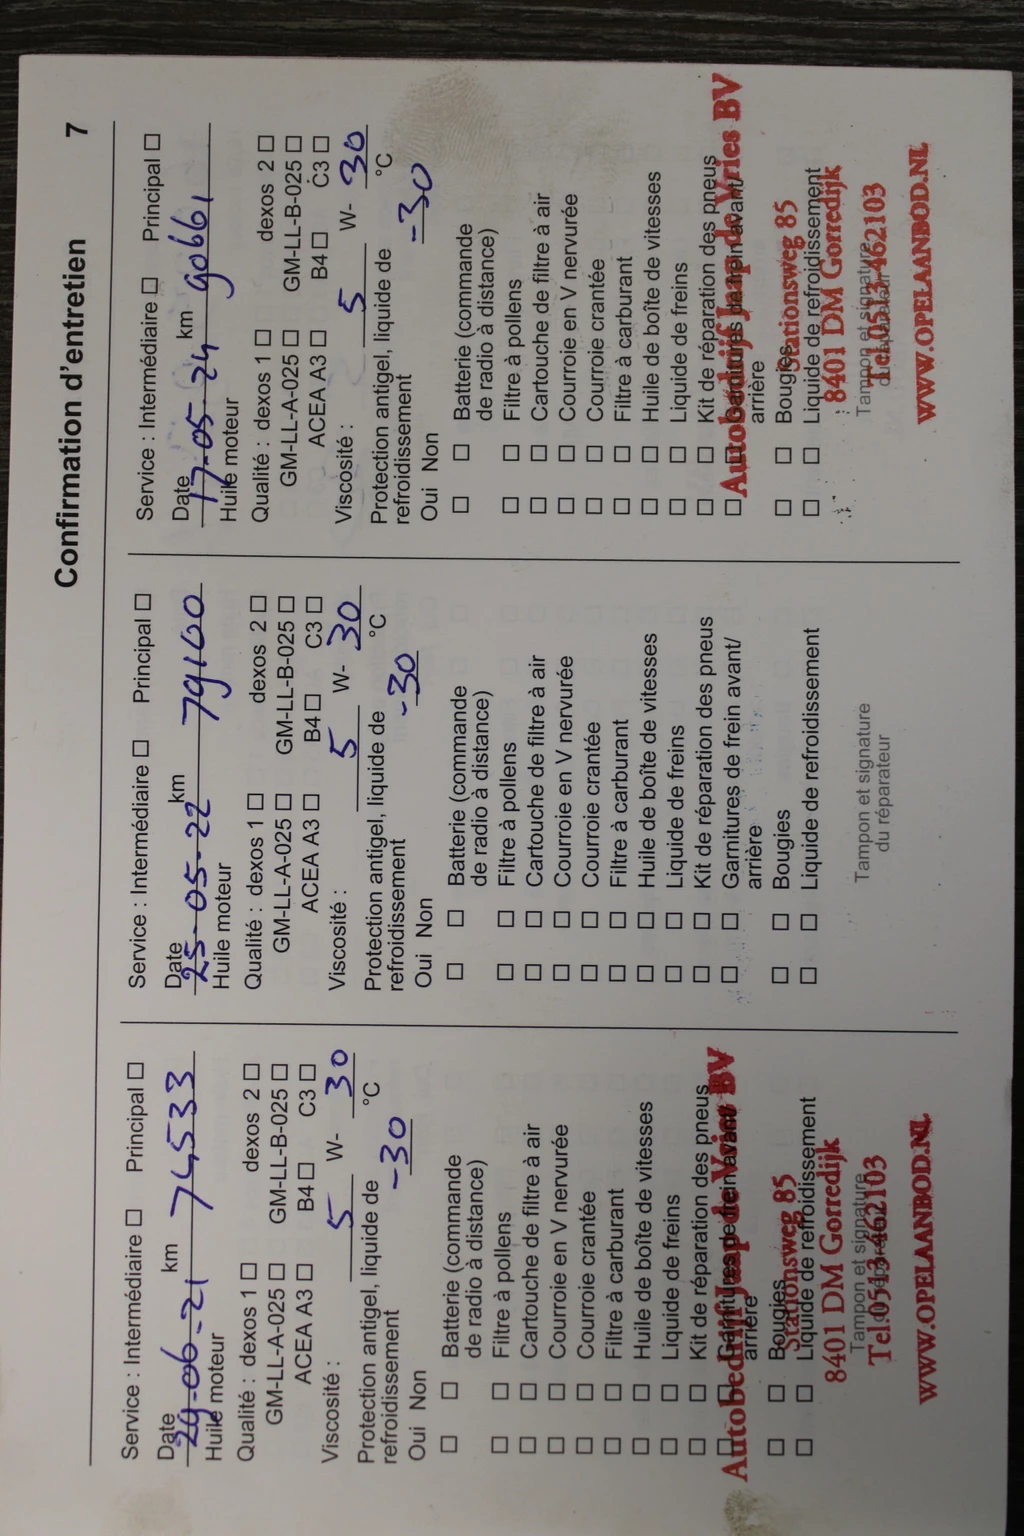 Confirmation d'entretien 7
Service : Intermédiaire ☐ Principal ☐
Date km
29-06-21 74533
Huile moteur
Qualité : dexos 1 ☐ dexos 2 ☐
GM-LL-A-025 ☐ GM-LL-B-025 ☐
ACEA A3 ☐ B4 ☐ C3 ☐
Viscosité : 5 W- 30
Protection antigel, liquide de
refroidissement -30 °C
Oui Non
☐ ☐ Batterie (commande
de radio à distance)
☐ ☐ Filtre à pollens
☐ ☐ Cartouche de filtre à air
☐ ☐ Courroie en V nervurée
☐ ☐ Courroie crantée
☐ ☐ Filtre à carburant
☐ ☐ Huile de boîte de vitesses
☐ ☐ Liquide de freins
☐ ☐ Kit de réparation des pneus
☐ ☐ Garnitures de frein avant/
arrière
☐ ☐ Bougies
☐ ☐ Liquide de refroidissement
Tampon et signature
du réparateur
Autobedrijf Jaap de Vries BV
Stationsweg 85
8401 DM Gorredijk
Tel.0513-462103
WWW.OPELAANBOD.NL
Service : Intermédiaire ☐ Principal ☐
Date km
25-05-22 79100
Huile moteur
Qualité : dexos 1 ☐ dexos 2 ☐
GM-LL-A-025 ☐ GM-LL-B-025 ☐
ACEA A3 ☐ B4 ☐ C3 ☐
Viscosité : 5 W- 30
Protection antigel, liquide de
refroidissement -30 °C
Oui Non
☐ ☐ Batterie (commande
de radio à distance)
☐ ☐ Filtre à pollens
☐ ☐ Cartouche de filtre à air
☐ ☐ Courroie en V nervurée
☐ ☐ Courroie crantée
☐ ☐ Filtre à carburant
☐ ☐ Huile de boîte de vitesses
☐ ☐ Liquide de freins
☐ ☐ Kit de réparation des pneus
☐ ☐ Garnitures de frein avant/
arrière
☐ ☐ Bougies
☐ ☐ Liquide de refroidissement
Tampon et signature
du réparateur
Service : Intermédiaire ☐ Principal ☐
Date km
17-05-24 90661
Huile moteur
Qualité : dexos 1 ☐ dexos 2 ☐
GM-LL-A-025 ☐ GM-LL-B-025 ☐
ACEA A3 ☐ B4 ☐ C3 ☐
Viscosité : 5 W- 30
Protection antigel, liquide de
refroidissement -30 °C
Oui Non
☐ ☐ Batterie (commande
de radio à distance)
☐ ☐ Filtre à pollens
☐ ☐ Cartouche de filtre à air
☐ ☐ Courroie en V nervurée
☐ ☐ Courroie crantée
☐ ☐ Filtre à carburant
☐ ☐ Huile de boîte de vitesses
☐ ☐ Liquide de freins
☐ ☐ Kit de réparation des pneus
☐ ☐ Garnitures de frein avant/
arrière
☐ ☐ Bougies
☐ ☐ Liquide de refroidissement
Tampon et signature
du réparateur
Autobedrijf Jaap de Vries BV
Stationsweg 85
8401 DM Gorredijk
Tel.0513-462103
WWW.OPELAANBOD.NL